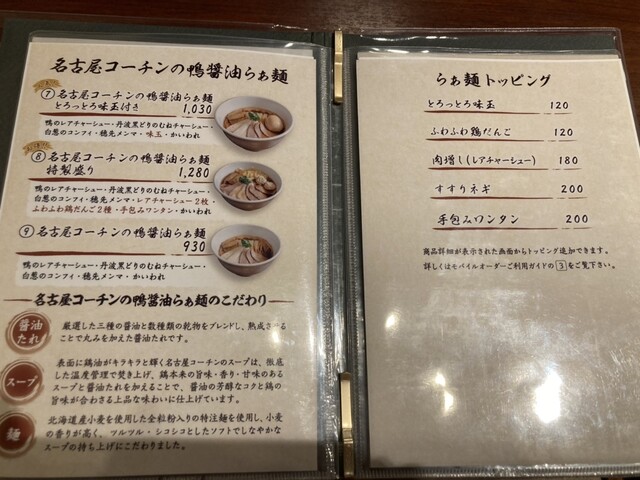 名古屋コーチンの鴨醤油らぁ麺
⑦ 名古屋コーチンの鴨醤油らぁ麺
とろっとろ味玉付き 1,030
鴨のレアチャーシュー・丹波黒どりのむねチャーシュー・
白葱のコンフィ・穂先メンマ・味玉・かいわれ
⑧ 名古屋コーチンの鴨醤油らぁ麺
特製盛り 1,280
鴨のレアチャーシュー・丹波黒どりのむねチャーシュー・
白葱のコンフィ・穂先メンマ・レアチャーシュー2枚・
ふわふわ鶏だんご2種・手包みワンタン・かいわれ
⑨ 名古屋コーチンの鴨醤油らぁ麺
930
鴨のレアチャーシュー・丹波黒どりのむねチャーシュー・
白葱のコンフィ・穂先メンマ・かいわれ
名古屋コーチンの鴨醤油らぁ麺のこだわり
醤油
たれ
厳選した三種の醤油と数種類の乾物をブレンドし、熟成させる
ことで丸みを加えた醤油たれです。
スープ
表面に鶏油がキラキラと輝く名古屋コーチンのスープは、徹底
した温度管理で焚き上げ、鶏本来の旨味・香り・甘味のある
スープと醤油たれを加えることで、醤油の芳醇なコクと鶏の
旨味が合わさる上品な味わいに仕上げています。
麺
北海道産小麦を使用した全粒粉入りの特注麺を使用し、小麦
の香りが高く、ツルツル・シコシコとしたソフトでしなやかな
スープの持ち上げにこだわりました。
らぁ麺トッピング
とろっとろ味玉 120
ふわふわ鶏だんご 120
肉増し(レアチャーシュー) 180
すすりネギ 200
手包みワンタン 200
商品詳細が表示された画面からトッピング追加ができます。
詳しくはモバイルオーダーご利用ガイドの 3 をご覧下さい。